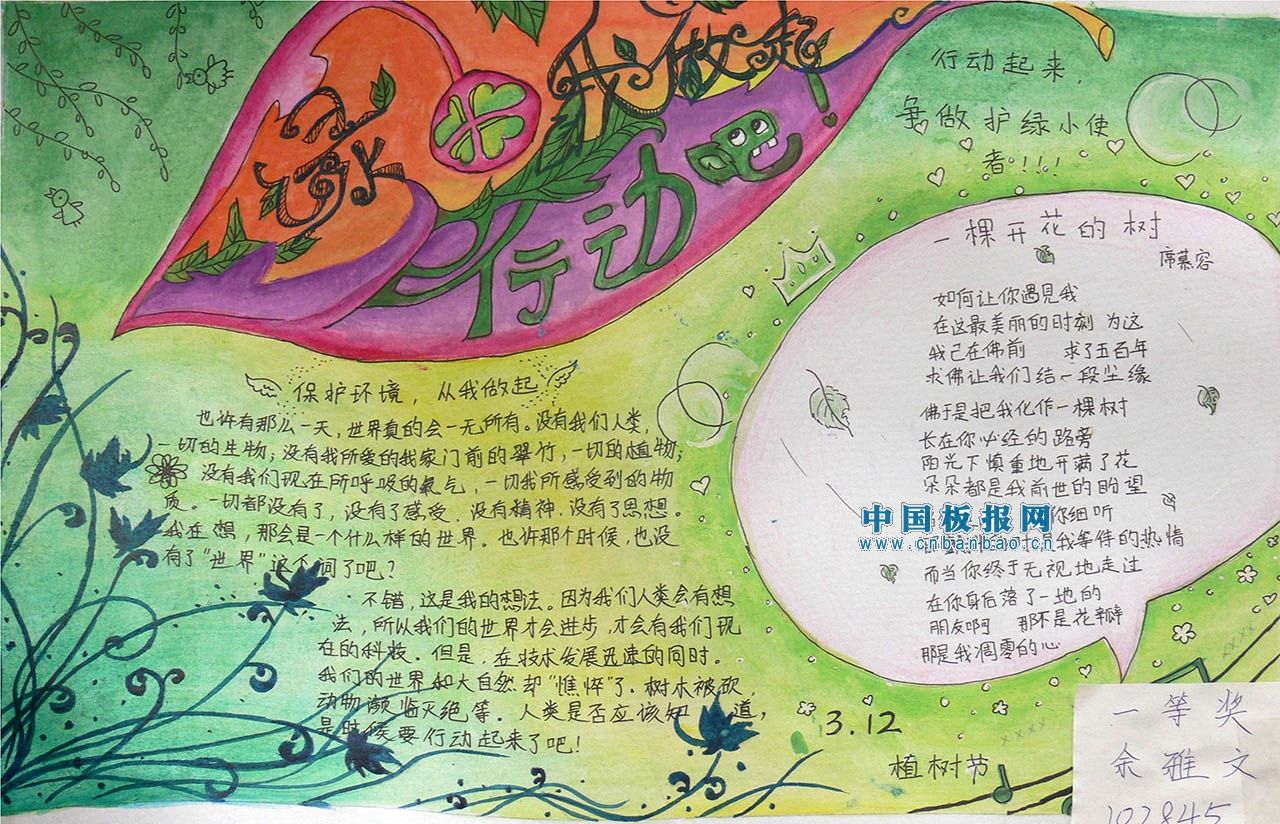 绿 我做起！
行动吧
行动起来，
争做护绿小使
者！！！
一棵开花的树
席慕容
如何让你遇見我
在这最美丽的时刻 为这
我已在佛前 求了五百年
求佛让我们结一段尘缘
佛于是把我化作一棵树
长在你必经的路旁
阳光下慎重地开满了花
朵朵都是我前世的盼望
你细听
我等待的热情
而当你终于无视地走过
在你身后落了一地的
朋友啊 那不是花瓣
那是我凋零的心
中国板报网
www.cnbanbao.cn
保护环境，从我做起
也许有那么一天，世界真的会一无所有。没有我们人类，
一切的生物；没有我所爱的我家门前的翠竹，一切的植物；
没有我们现在所呼吸的氧气，一切我所感受到的物
质。一切都没有了，没有了感受．没有精神．没有了思想。
我在想，那会是一个什么样的世界。也许那个时候，也没
有了“世界”这个词了吧？
不错，这是我的想法。因为我们人类会有想
法，所以我们的世界才会进步，才会有我们现
在的科技．但是，在技术发展迅速的同时。
我们的世界和大自然却“憔悴”了．树木被砍，
动物濒临灭绝等．人类是否应该知道，
是时候要行动起来了吧！
3.12
植树节
一等奖
余雅文
102845